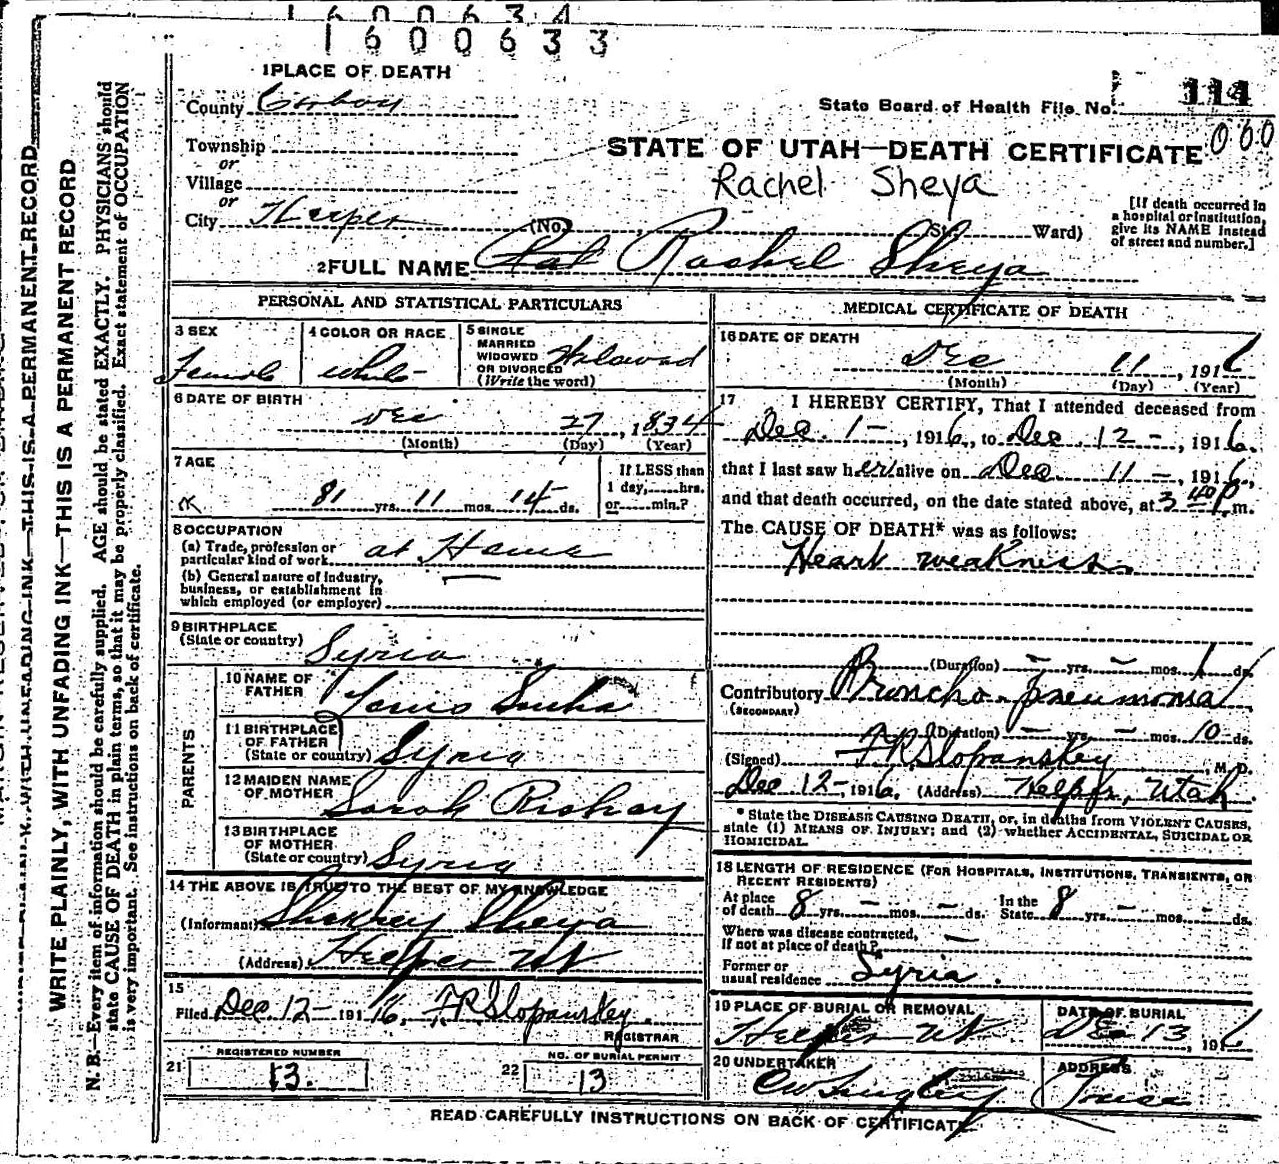 1600634
1600633
1 PLACE OF DEATH
County Carbon
State Board of Health File No. 111
060
Township
or
Village
or
City Helper (No. St. Ward)
STATE OF UTAH—DEATH CERTIFICATE
Rachel Sheya
[If death occurred in
a hospital or institution,
give its NAME instead
of street and number.]
2 FULL NAME Rachel Sheya
PERSONAL AND STATISTICAL PARTICULARS
3 SEX
Female
4 COLOR OR RACE
white
5 SINGLE
MARRIED
WIDOWED
OR DIVORCED
(Write the word)
Widowed
6 DATE OF BIRTH
Dec 27, 1834
(Month) (Day) (Year)
7 AGE
81 yrs. 11 mos. 14 ds.
If LESS than
1 day, hrs.
or min.?
8 OCCUPATION
(a) Trade, profession or
particular kind of work at Home
(b) General nature of industry,
business, or establishment in
which employed (or employer)
9 BIRTHPLACE
(State or country) Syria
PARENTS
10 NAME OF
FATHER
11 BIRTHPLACE
OF FATHER
(State or country) Syria
12 MAIDEN NAME
OF MOTHER Sarah Rishay
13 BIRTHPLACE
OF MOTHER
(State or country) Syria
14 THE ABOVE IS TRUE TO THE BEST OF MY KNOWLEDGE
(Informant) Sheya
(Address) Helper Ut
15
Filed Dec 12 - 191 16, F.R. Slopanskey
REGISTRAR
21 REGISTERED NUMBER
13.
22 NO. OF BURIAL PERMIT
13
MEDICAL CERTIFICATE OF DEATH
16 DATE OF DEATH
Dec 11, 1916
(Month) (Day) (Year)
17 I HEREBY CERTIFY, That I attended deceased from
Dec. 1 -, 1916, to Dec. 12 -, 1916.
that I last saw her alive on Dec 11 -, 1916,
and that death occurred, on the date stated above, at 3 40 P m.
The CAUSE OF DEATH* was as follows:
Heart weakness
(Duration) - yrs. - mos. 1 ds.
Contributory Broncho-pneumonia
(SECONDARY)
(Duration) - yrs. - mos. 10 ds.
(Signed) F.R. Slopanskey M. D.
Dec 12 -, 1916. (Address) Helper, Utah.
* State the DISEASE CAUSING DEATH, or, in deaths from VIOLENT CAUSES,
state (1) MEANS OF INJURY; and (2) whether ACCIDENTAL, SUICIDAL OR
HOMICIDAL.
18 LENGTH OF RESIDENCE (FOR HOSPITALS, INSTITUTIONS, TRANSIENTS, OR
RECENT RESIDENTS)
At place
of death 8 yrs. - mos. - ds.
In the
State 8 yrs. - mos. - ds.
Where was disease contracted,
if not at place of death? -
Former or
usual residence Syria.
19 PLACE OF BURIAL OR REMOVAL
Helper Ut
DATE OF BURIAL
Dec 13, 1916
20 UNDERTAKER
ADDRESS
Price
READ CAREFULLY INSTRUCTIONS ON BACK OF CERTIFICATE
WRITE PLAINLY, WITH UNFADING INK—THIS IS A PERMANENT RECORD
N. B.—Every item of information should be carefully supplied. AGE should be stated EXACTLY. PHYSICIANS should
state CAUSE OF DEATH in plain terms, so that it may be properly classified. Exact statement of OCCUPATION
is very important. See instructions on back of certificate.